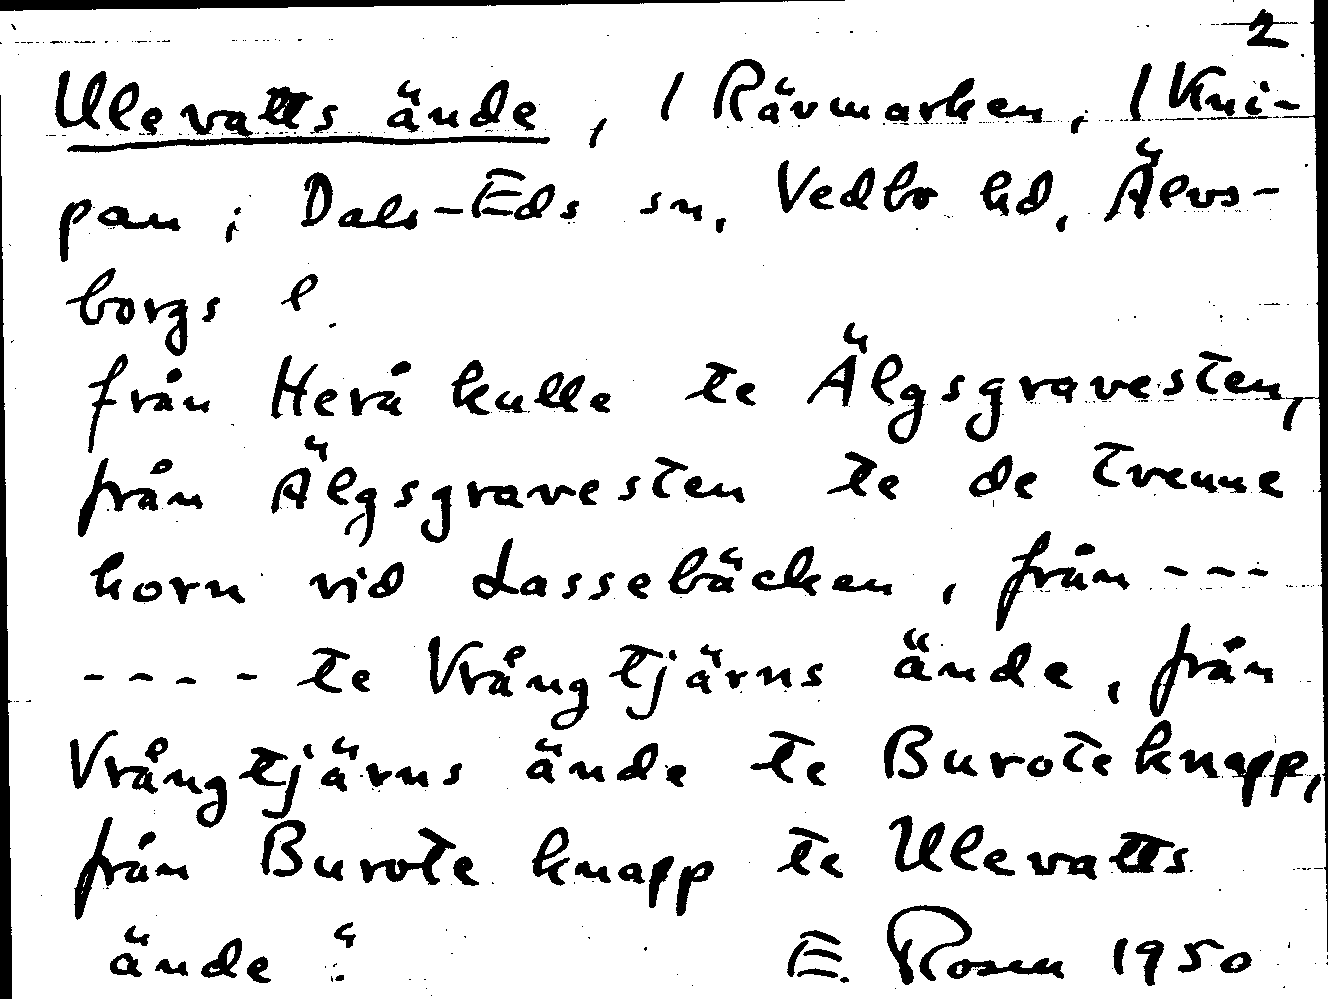 2
Ulevatts ände, / Rävmarken, / Kni-
pan; Dals-Eds sn, Vedbo hd, Älvs-
borgs l.
från Herå kulle te Älgsgravesten,
från Älgsgravesten te de tvenne
horn vid Lassebäcken, från ---
---- te Vrångtjärns ände, från
Vrångtjärns ände te Burote knapp,
från Burote knapp te Ulevatts
ände".
E. Rosen 1950